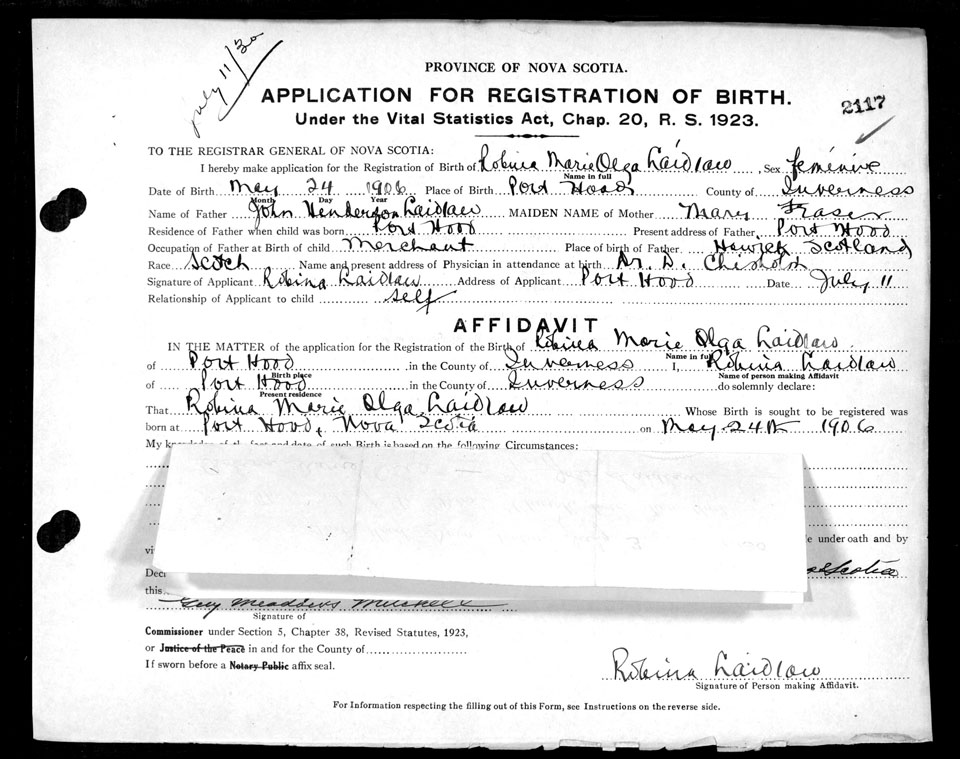 July 11/30
PROVINCE OF NOVA SCOTIA.
APPLICATION FOR REGISTRATION OF BIRTH.
2117
Under the Vital Statistics Act, Chap. 20, R. S. 1923.
TO THE REGISTRAR GENERAL OF NOVA SCOTIA:
I hereby make application for the Registration of Birth of Robina Marie Olga Laidlaw, Sex feminine
Name in full
Date of Birth May 24 1906 Place of Birth Port Hood County of Inverness
Month Day Year
Name of Father John Henderson Laidlaw MAIDEN NAME of Mother Mary Fraser
Residence of Father when child was born Port Hood Present address of Father Port Hood
Occupation of Father at Birth of child Merchant Place of birth of Father Hawick Scotland
Race Scotch Name and present address of Physician in attendance at birth Dr. D. Chisholm
Signature of Applicant Robina Laidlaw Address of Applicant Port Hood Date July 11
Relationship of Applicant to child self
AFFIDAVIT
IN THE MATTER of the application for the Registration of the Birth of Robina Marie Olga Laidlaw
Name in full
of Port Hood in the County of Inverness I, Robina Laidlaw
Birth place Name of person making Affidavit
of Port Hood in the County of Inverness do solemnly declare:
Present residence
That Robina Marie Olga Laidlaw Whose Birth is sought to be registered was
born at Port Hood, Nova Scotia on May 24th 1906
My knowledge of the fact and date of such Birth is based on the following Circumstances:
e under oath and by
vi
Decl Scotia
this
Guy Meadows Mitchell
Signature of
Commissioner under Section 5, Chapter 38, Revised Statutes, 1923,
or Justice of the Peace in and for the County of
If sworn before a Notary Public affix seal.
Robina Laidlaw
Signature of Person making Affidavit.
For Information respecting the filling out of this Form, see Instructions on the reverse side.